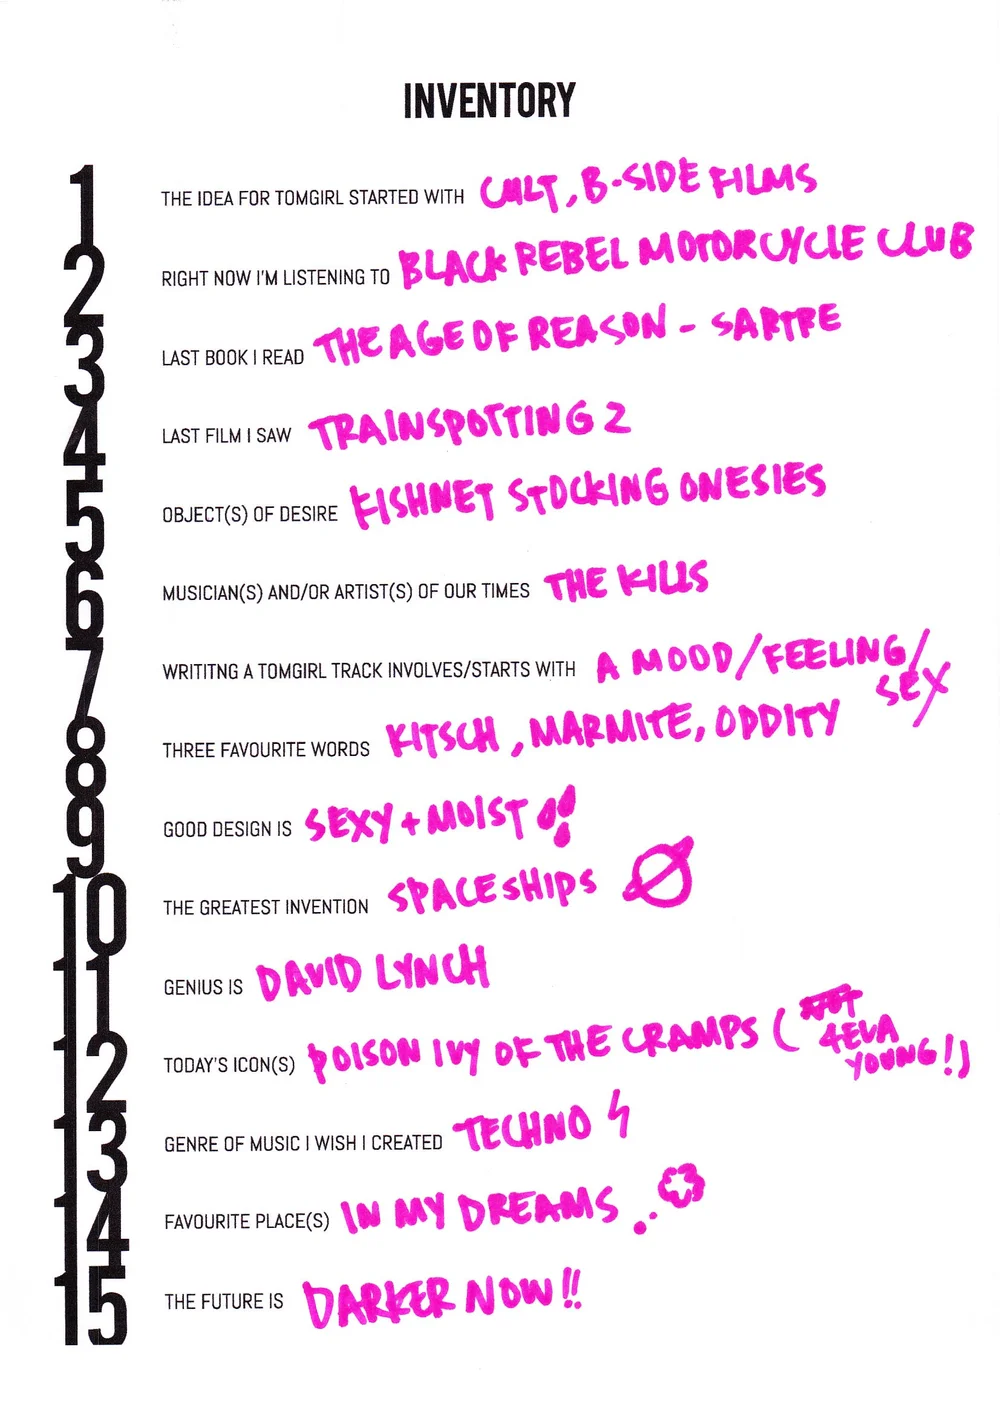 INVENTORY
1 THE IDEA FOR TOMGIRL STARTED WITH CULT, B-SIDE FILMS
2 RIGHT NOW I'M LISTENING TO BLACK REBEL MOTORCYCLE CLUB
3 LAST BOOK I READ THE AGE OF REASON - SARTRE
4 LAST FILM I SAW TRAINSPOTTING 2
5 OBJECT(S) OF DESIRE FISHNET STOCKING ONESIES
6 MUSICIAN(S) AND/OR ARTIST(S) OF OUR TIMES THE KILLS
7 WRITITNG A TOMGIRL TRACK INVOLVES/STARTS WITH A MOOD/FEELING/
SEX
8 THREE FAVOURITE WORDS KITSCH, MARMITE, ODDITY
9 GOOD DESIGN IS SEXY + MOIST
10 THE GREATEST INVENTION SPACESHIPS
11 GENIUS IS DAVID LYNCH
12 TODAY'S ICON(S) POISON IVY OF THE CRAMPS (
4EVA
YOUNG!)
13 GENRE OF MUSIC I WISH I CREATED TECHNO
14 FAVOURITE PLACE(S) IN MY DREAMS
15 THE FUTURE IS DARKER NOW!!